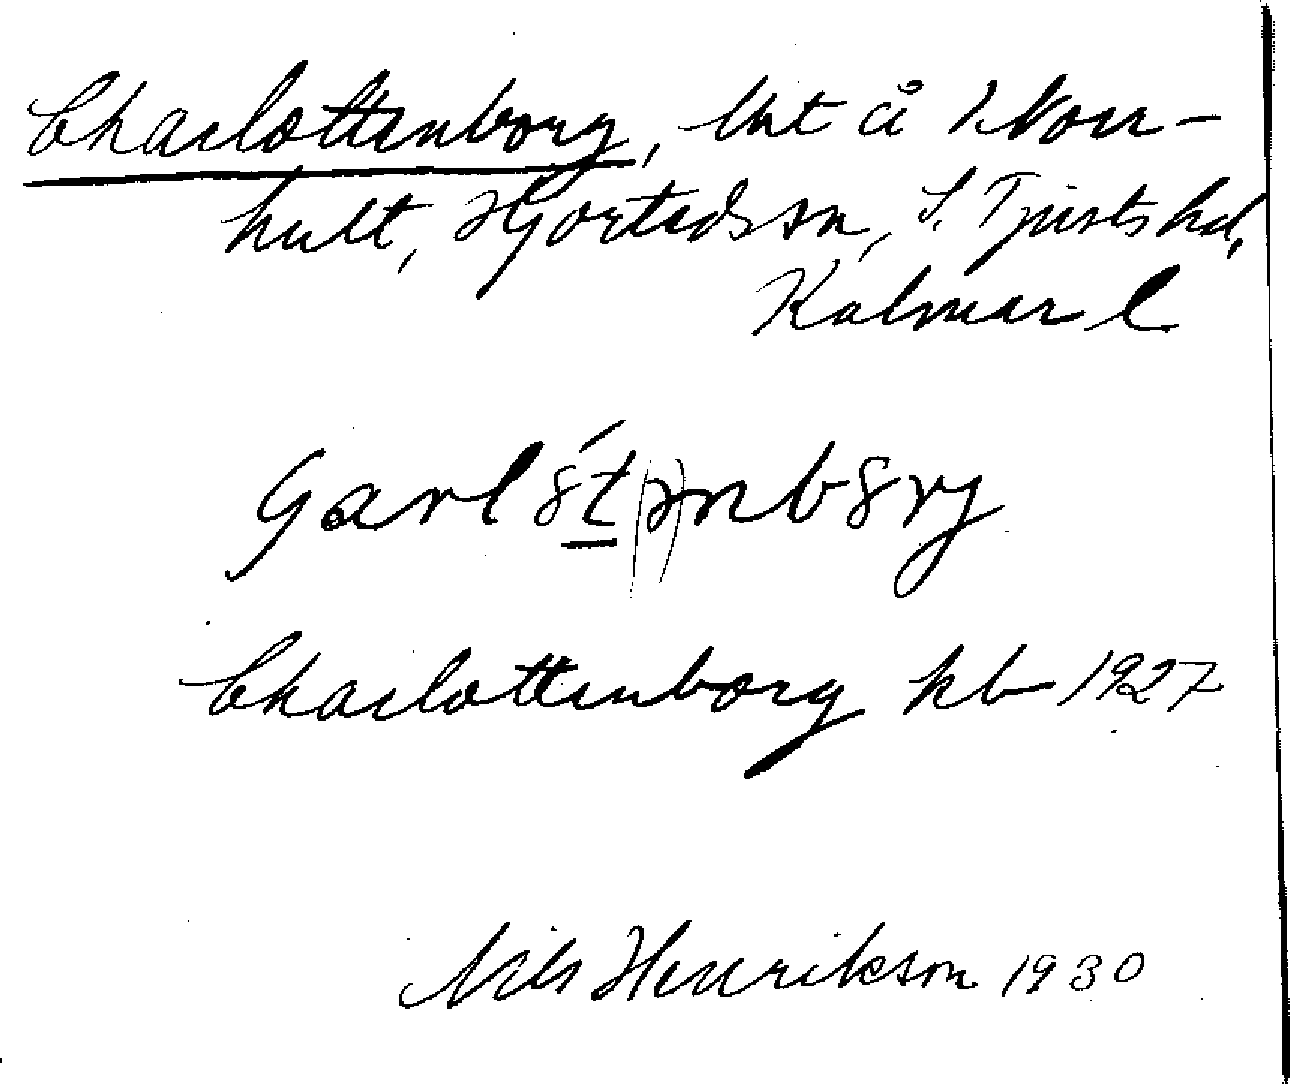 Charlottenborg, lht å Norr-
hult, Hjorteds sn, S. Tjusts hd,
Kalmar l
Charlottenborg kb 1927
Nils Henrikson 1930